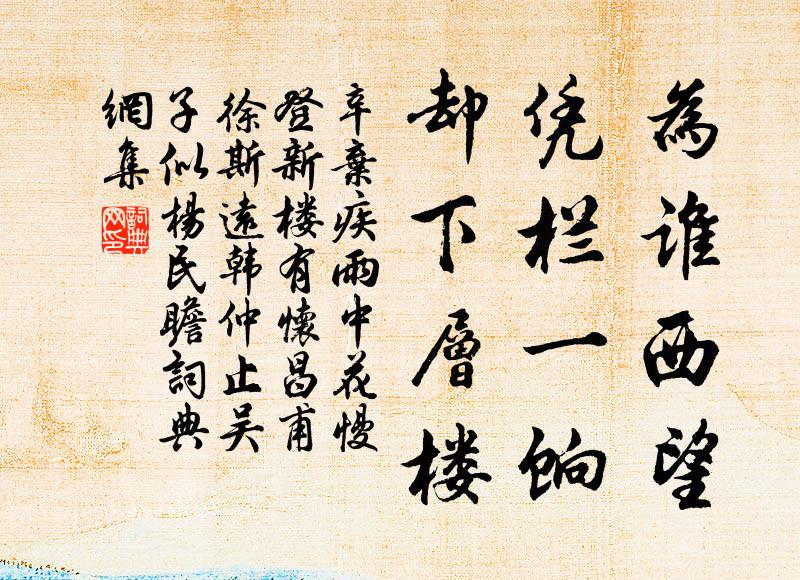 為谁西望
凭栏一饷
却下層楼
辛棄疾雨中花慢
登新楼有懷昌甫
徐斯遠韩仲止吴
子似杨民瞻詞典
網集
詞典
网印